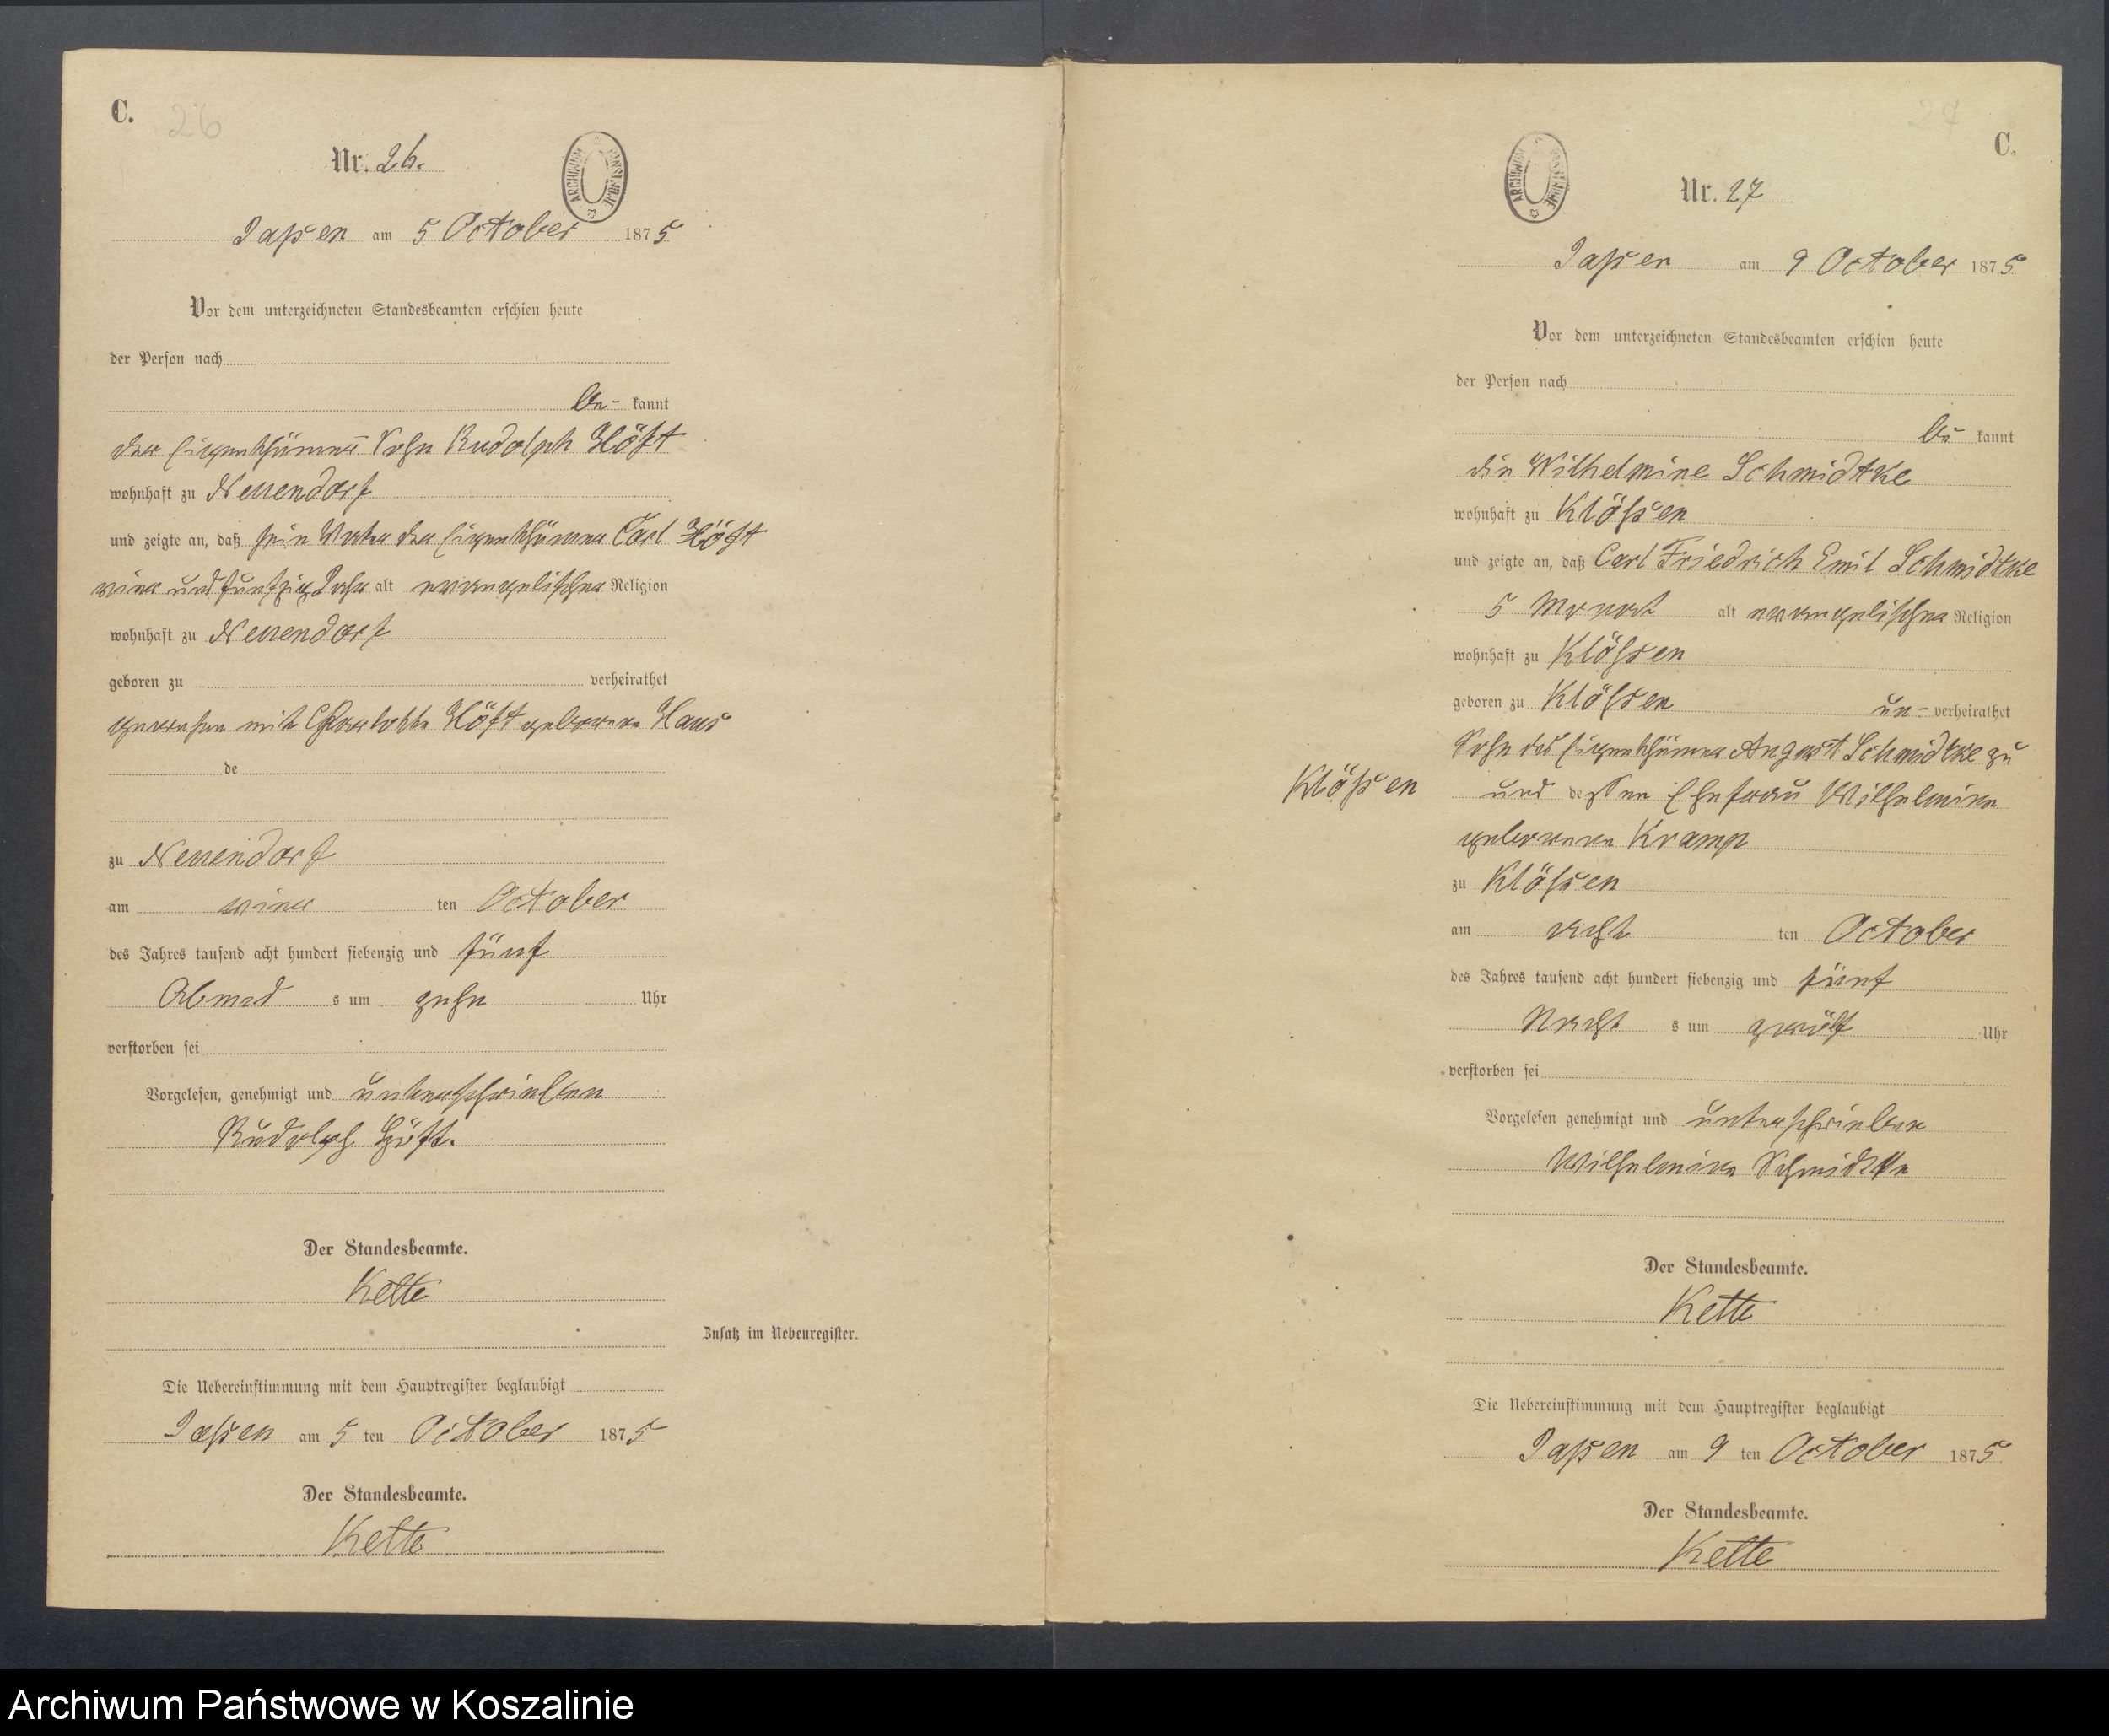 C.
26
Nr. 26.
ARCHIWUM PAŃSTWOWE
Jaßen am 5 October 1875
Vor dem unterzeichneten Standesbeamten erschien heute
der Person nach
be- kannt
der Eigenthümer Sohn Rudolph Höft
wohnhaft zu Neuendorf
und zeigte an, daß sein Vater der Eigenthümer Carl Höft
vier und funfzig Jahr alt evangelischer Religion
wohnhaft zu Neuendorf
geboren zu verheirathet
gewesen mit Charlotte Höft geborene Haus
de
zu Neuendorf
am vier ten October
des Jahres tausend acht hundert siebenzig und fünf
Abend s um zehn Uhr
verstorben sei
Vorgelesen, genehmigt und unterschrieben
Rudolph Höft.
Der Standesbeamte.
Kette
Zusatz im Nebenregister.
Die Uebereinstimmung mit dem Hauptregister beglaubigt
Jaßen am 5 ten October 1875
Der Standesbeamte.
Kette
27
C.
ARCHIWUM PAŃSTWOWE
Nr. 27
Jaßen am 9 October 1875
Vor dem unterzeichneten Standesbeamten erschien heute
der Person nach
be kannt
die Wilhelmine Schmidtke
wohnhaft zu Klößen
und zeigte an, daß Carl Friedrich Emil Schmidtke
5 Monat alt evangelischer Religion
wohnhaft zu Klößen
geboren zu Klößen un- verheirathet
Sohn des Eigenthümer August Schmidtke zu
Klößen und dessen Ehefrau Wilhelmine
geborene Kramp
zu Klößen
am acht ten October
des Jahres tausend acht hundert siebenzig und fünf
Nacht s um zwölf Uhr
verstorben sei
Vorgelesen genehmigt und unterschrieben
Wilhelmine Schmidtke
Der Standesbeamte.
Kette
Die Uebereinstimmung mit dem Hauptregister beglaubigt
Jaßen am 9 ten October 1875
Der Standesbeamte.
Kette
Archiwum Państwowe w Koszalinie